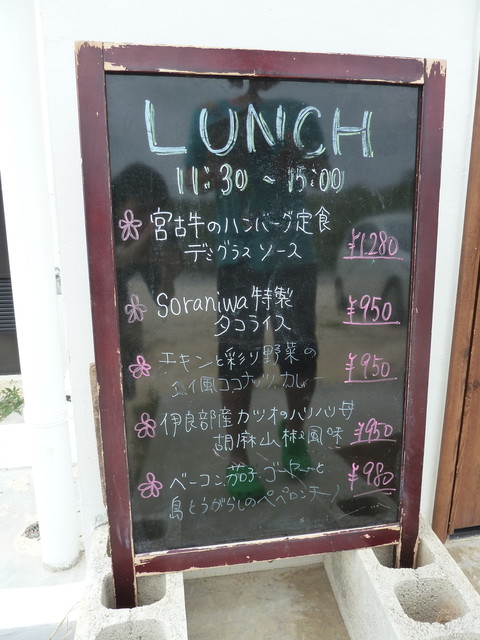 LUNCH
11:30 ~ 15:00
宮古牛のハンバーグ定食
デミグラスソース
¥1.280
Soraniwa特製
タコライス
¥950
エキンと彩り野菜の
タイ風ココナッツカレー
¥950
伊良部産カツオのハリハリ丼
胡麻山椒風味
¥950
ベーコン、茄子、ゴーヤーと
島とうがらしのペペロンチーノ
¥980